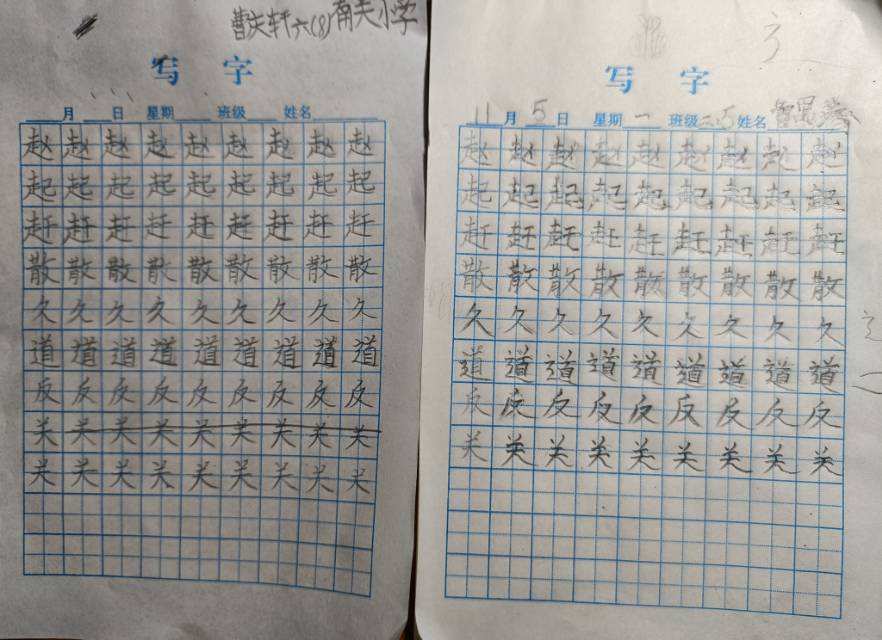 轩六(8)南关小学
写 字
月 日 星期 班级 姓名
赵 赵 赵 赵 赵 赵 赵 赵 赵
起 起 起 起 起 起 起 起 起
赶 赶 赶 赶 赶 赶 赶 赶 赶
散 散 散 散 散 散 散 散 散
久 久 久 久 久 久 久 久 久
道 道 道 道 道 道 道 道 道
反 反 反 反 反 反 反 反 反
关 关 关 关 关 关 关 关 关
关 关 关 关 关 关 关 关 关
写 字
11 月 5 日 星期 一 班级 三.5 姓名
赵 赵 赵 赵 赵 赵 赵 赵 赵
起 起 起 起 起 起 起 起 起
赶 赶 赶 赶 赶 赶 赶 赶 赶
散 散 散 散 散 散 散 散 散
久 久 久 久 久 久 久 久 久
道 道 道 道 道 道 道 道 道
反 反 反 反 反 反 反 反 反
关 关 关 关 关 关 关 关 关